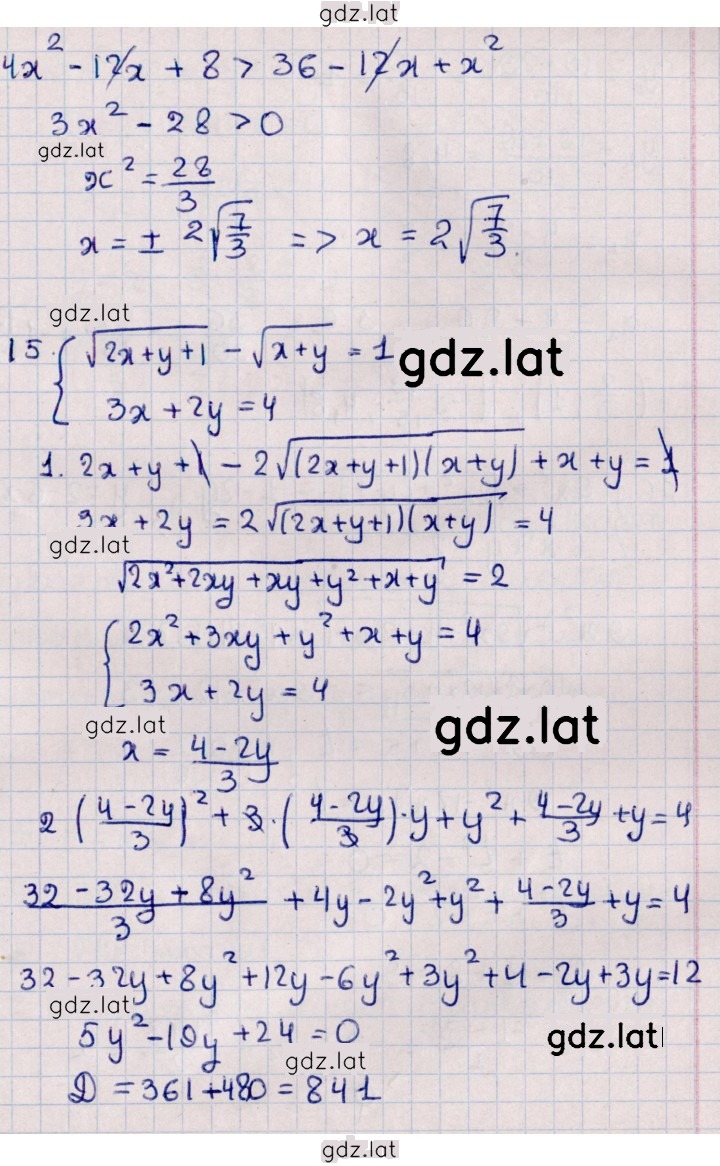 gdz.lat
4x² - 12x + 8 > 36 - 12x + x²
3x² - 28 > 0
gdz.lat
x² = 28/3
x = ± 2√(7/3) => x = 2√(7/3).
gdz.lat
15. { √(2x+y+1) - √(x+y) = 1
gdz.lat
3x + 2y = 4
1. 2x + y + 1 - 2√((2x+y+1)(x+y)) + x + y = 1
3x + 2y = 2√((2x+y+1)(x+y)) = 4
gdz.lat
√(2x²+2xy+xy+y²+x+y) = 2
{ 2x² + 3xy + y² + x + y = 4
3x + 2y = 4
gdz.lat
gdz.lat
x = (4-2y)/3
2((4-2y)/3)² + 3·((4-2y)/3)·y + y² + (4-2y)/3 + y = 4
(32 - 32y + 8y²)/3 + 4y - 2y² + y² + (4-2y)/3 + y = 4
32 - 32y + 8y² + 12y - 6y² + 3y² + 4 - 2y + 3y = 12
gdz.lat
5y² - 19y + 24 = 0
gdz.lat
gdz.lat
D = 361 + 480 = 841
gdz.lat